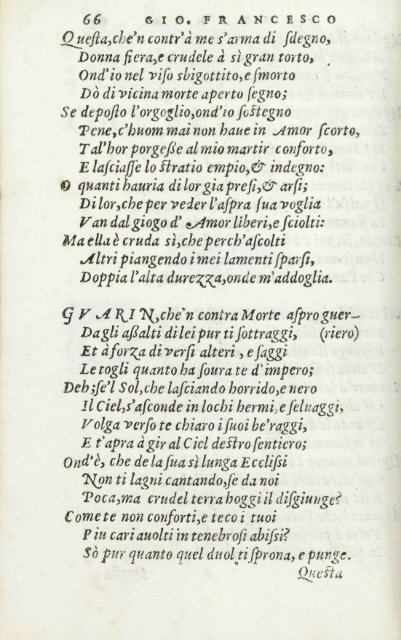 66 GIO. FRANCESCO
Queſta, che'n contr'à me s'arma di ſdegno,
Donna fiera, e crudele à sì gran torto,
Ond'io nel viſo sbigottito, e ſmorto
Dò di vicina morte aperto ſegno;
Se depoſto l'orgoglio, ond'io ſoſtegno
Pene, c'huom mai non haue in Amor ſcorto,
Tal'hor porgeſſe al mio martir conforto,
E laſciaſſe lo ſtratio empio, & indegno:
O quanti hauria di lor gia preſi, & arſi;
Di lor, che per veder l'aſpra ſua voglia
Van dal giogo d'Amor liberi, e ſciolti:
Ma ella è cruda sì, che perch'aſcolti
Altri piangendo i mei lamenti ſparſi,
Doppia l'alta durezza, onde m'addoglia.
GVARIN, che'n contra Morte aſpro guer-
Dagli aſſalti di lei pur ti ſottraggi, (riero)
Et à forza di verſi alteri, e ſaggi
Le togli quanto ha ſoura te d'impero;
Deh; ſe'l Sol, che laſciando horrido, e nero
Il Ciel, s'aſconde in lochi hermi, e ſeluaggi,
Volga verſo te chiaro i ſuoi be'raggi,
E t'apra à gir al Ciel deſtro ſentiero;
Ond'è, che de la ſua sì lunga Eccliſſi
Non ti lagni cantando, ſe da noi
Poca, ma crudel terra hoggi il diſgiunge?
Come te non conforti, e teco i tuoi
Piu cari auolti in tenebroſi abiſſi?
Sò pur quanto quel duol ti ſprona, e punge.
Queſta